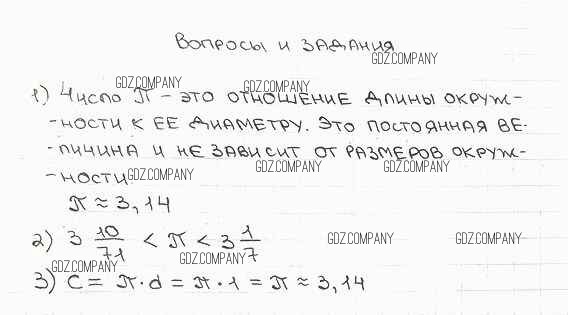 Вопросы и задания
GDZ.COMPANY
GDZ.COMPANY GDZ.COMPANY
1) Число π – это отношение длины окруж-
-ности к ее диаметру. Это постоянная ве-
-личина и не зависит от размеров окруж-
GDZ.COMPANY GDZ.COMPANY
-ности. GDZ.COMPANY
π ≈ 3,14
2) 3 10/71 < π < 3 1/7
GDZ.COMPANY GDZ.COMPANY
GDZ.COMPANY GDZ.COMPANY
3) C = π · d = π · 1 = π ≈ 3,14